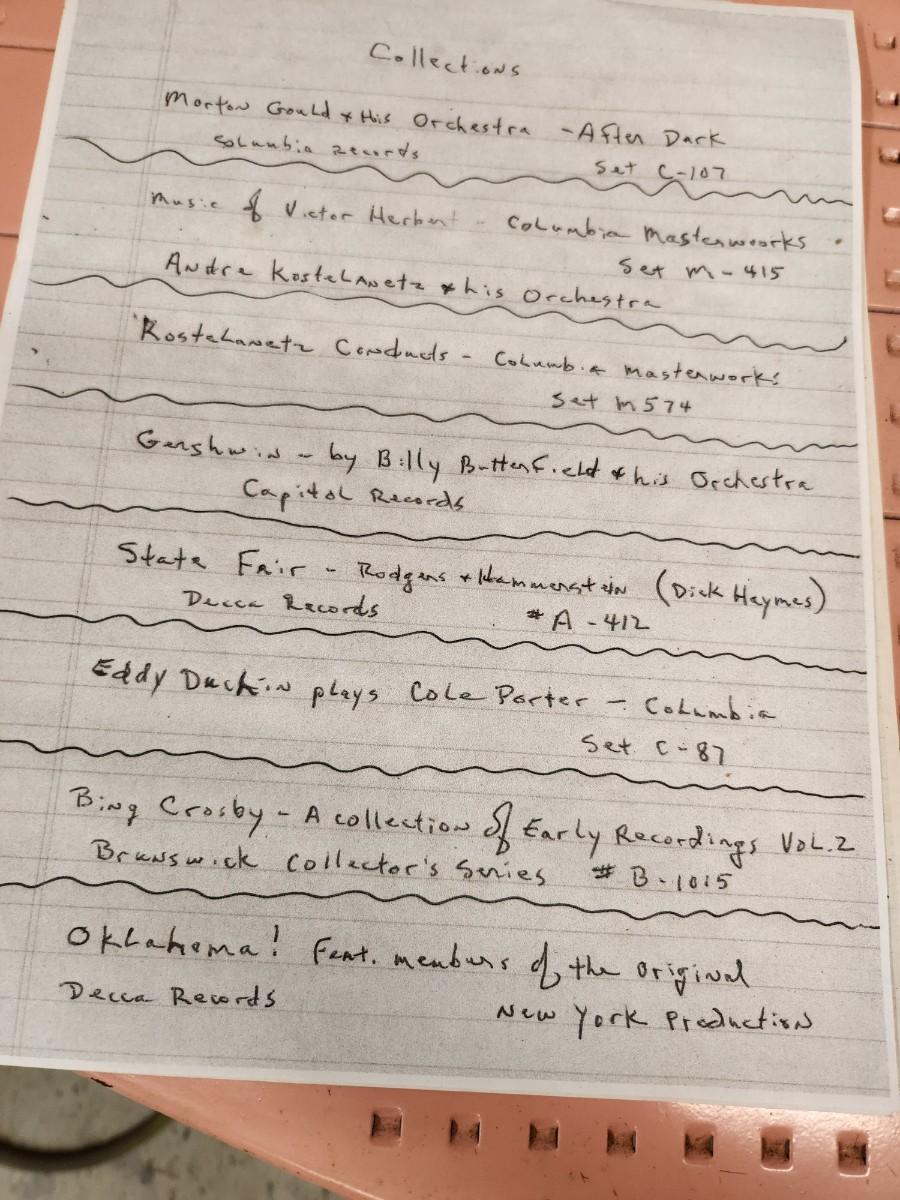 Collections
Morton Gould & His Orchestra - After Dark
Columbia Records Set C-107
Music of Victor Herbert - Columbia Masterworks
Set M-415
Andre Kostelanetz & his Orchestra
Kostelanetz Conducts - Columbia Masterworks
Set M574
Gershwin - by Billy Butterfield & his Orchestra
Capitol Records
State Fair - Rodgers & Hammerstein (Dick Haymes)
Decca Records # A-412
Eddy Duchin plays Cole Porter - Columbia
Set C-87
Bing Crosby - A collection of Early Recordings Vol. 2
Brunswick Collector's Series # B-1015
Oklahoma! Feat. members of the original
Decca Records New York Production